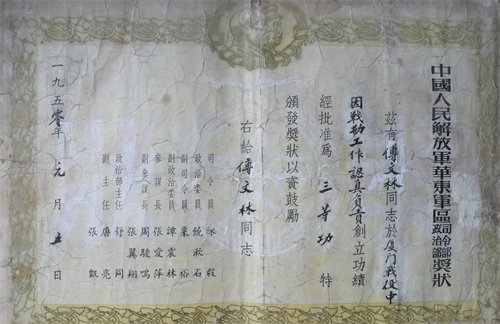 中國人民解放軍華東軍區司令部政治部獎狀
茲有傅文林同志於厦門戰役中
因戰勤工作認真負責創立功績
經批准爲三等功特
頒發獎狀以資鼓勵
右給傅文林同志
司令員 陳毅
政治委員 饒漱石
副司令員 粟裕
副政治委員 譚震林
參謀長 張愛萍
副參謀長 周駿鳴
張翼翔
政治部主任 舒同
副主任 唐亮
張凱
一九五零年元月五日